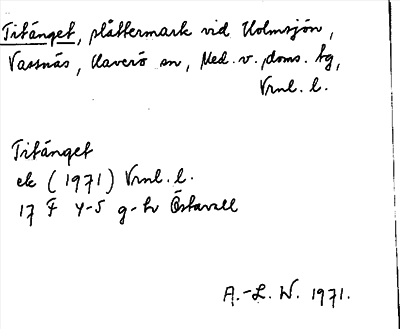 Titänget, slåttermark vid Holmsjön,
Vassnäs, Haverö sn, Med. v. doms. tg,
Vrnl. l.
Titänget
ek (1971) Vrnl. l.
17 F 4-5 g-h Östavall
A.-L. W. 1971.